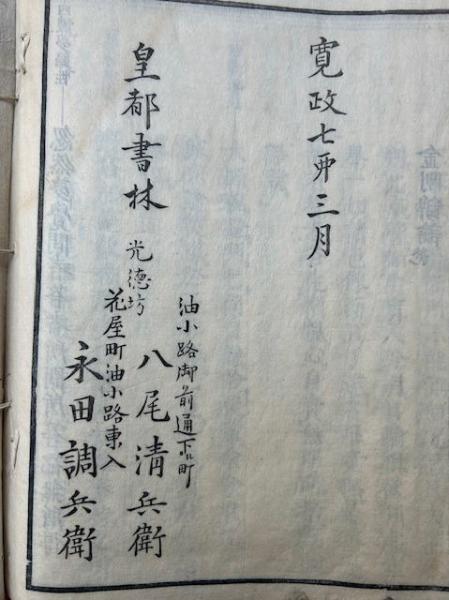 寛政七夘三月
皇都書林
油小路御前通下ル町
光德坊
八尾清兵衛
花屋町油小路東入
永田調兵衛